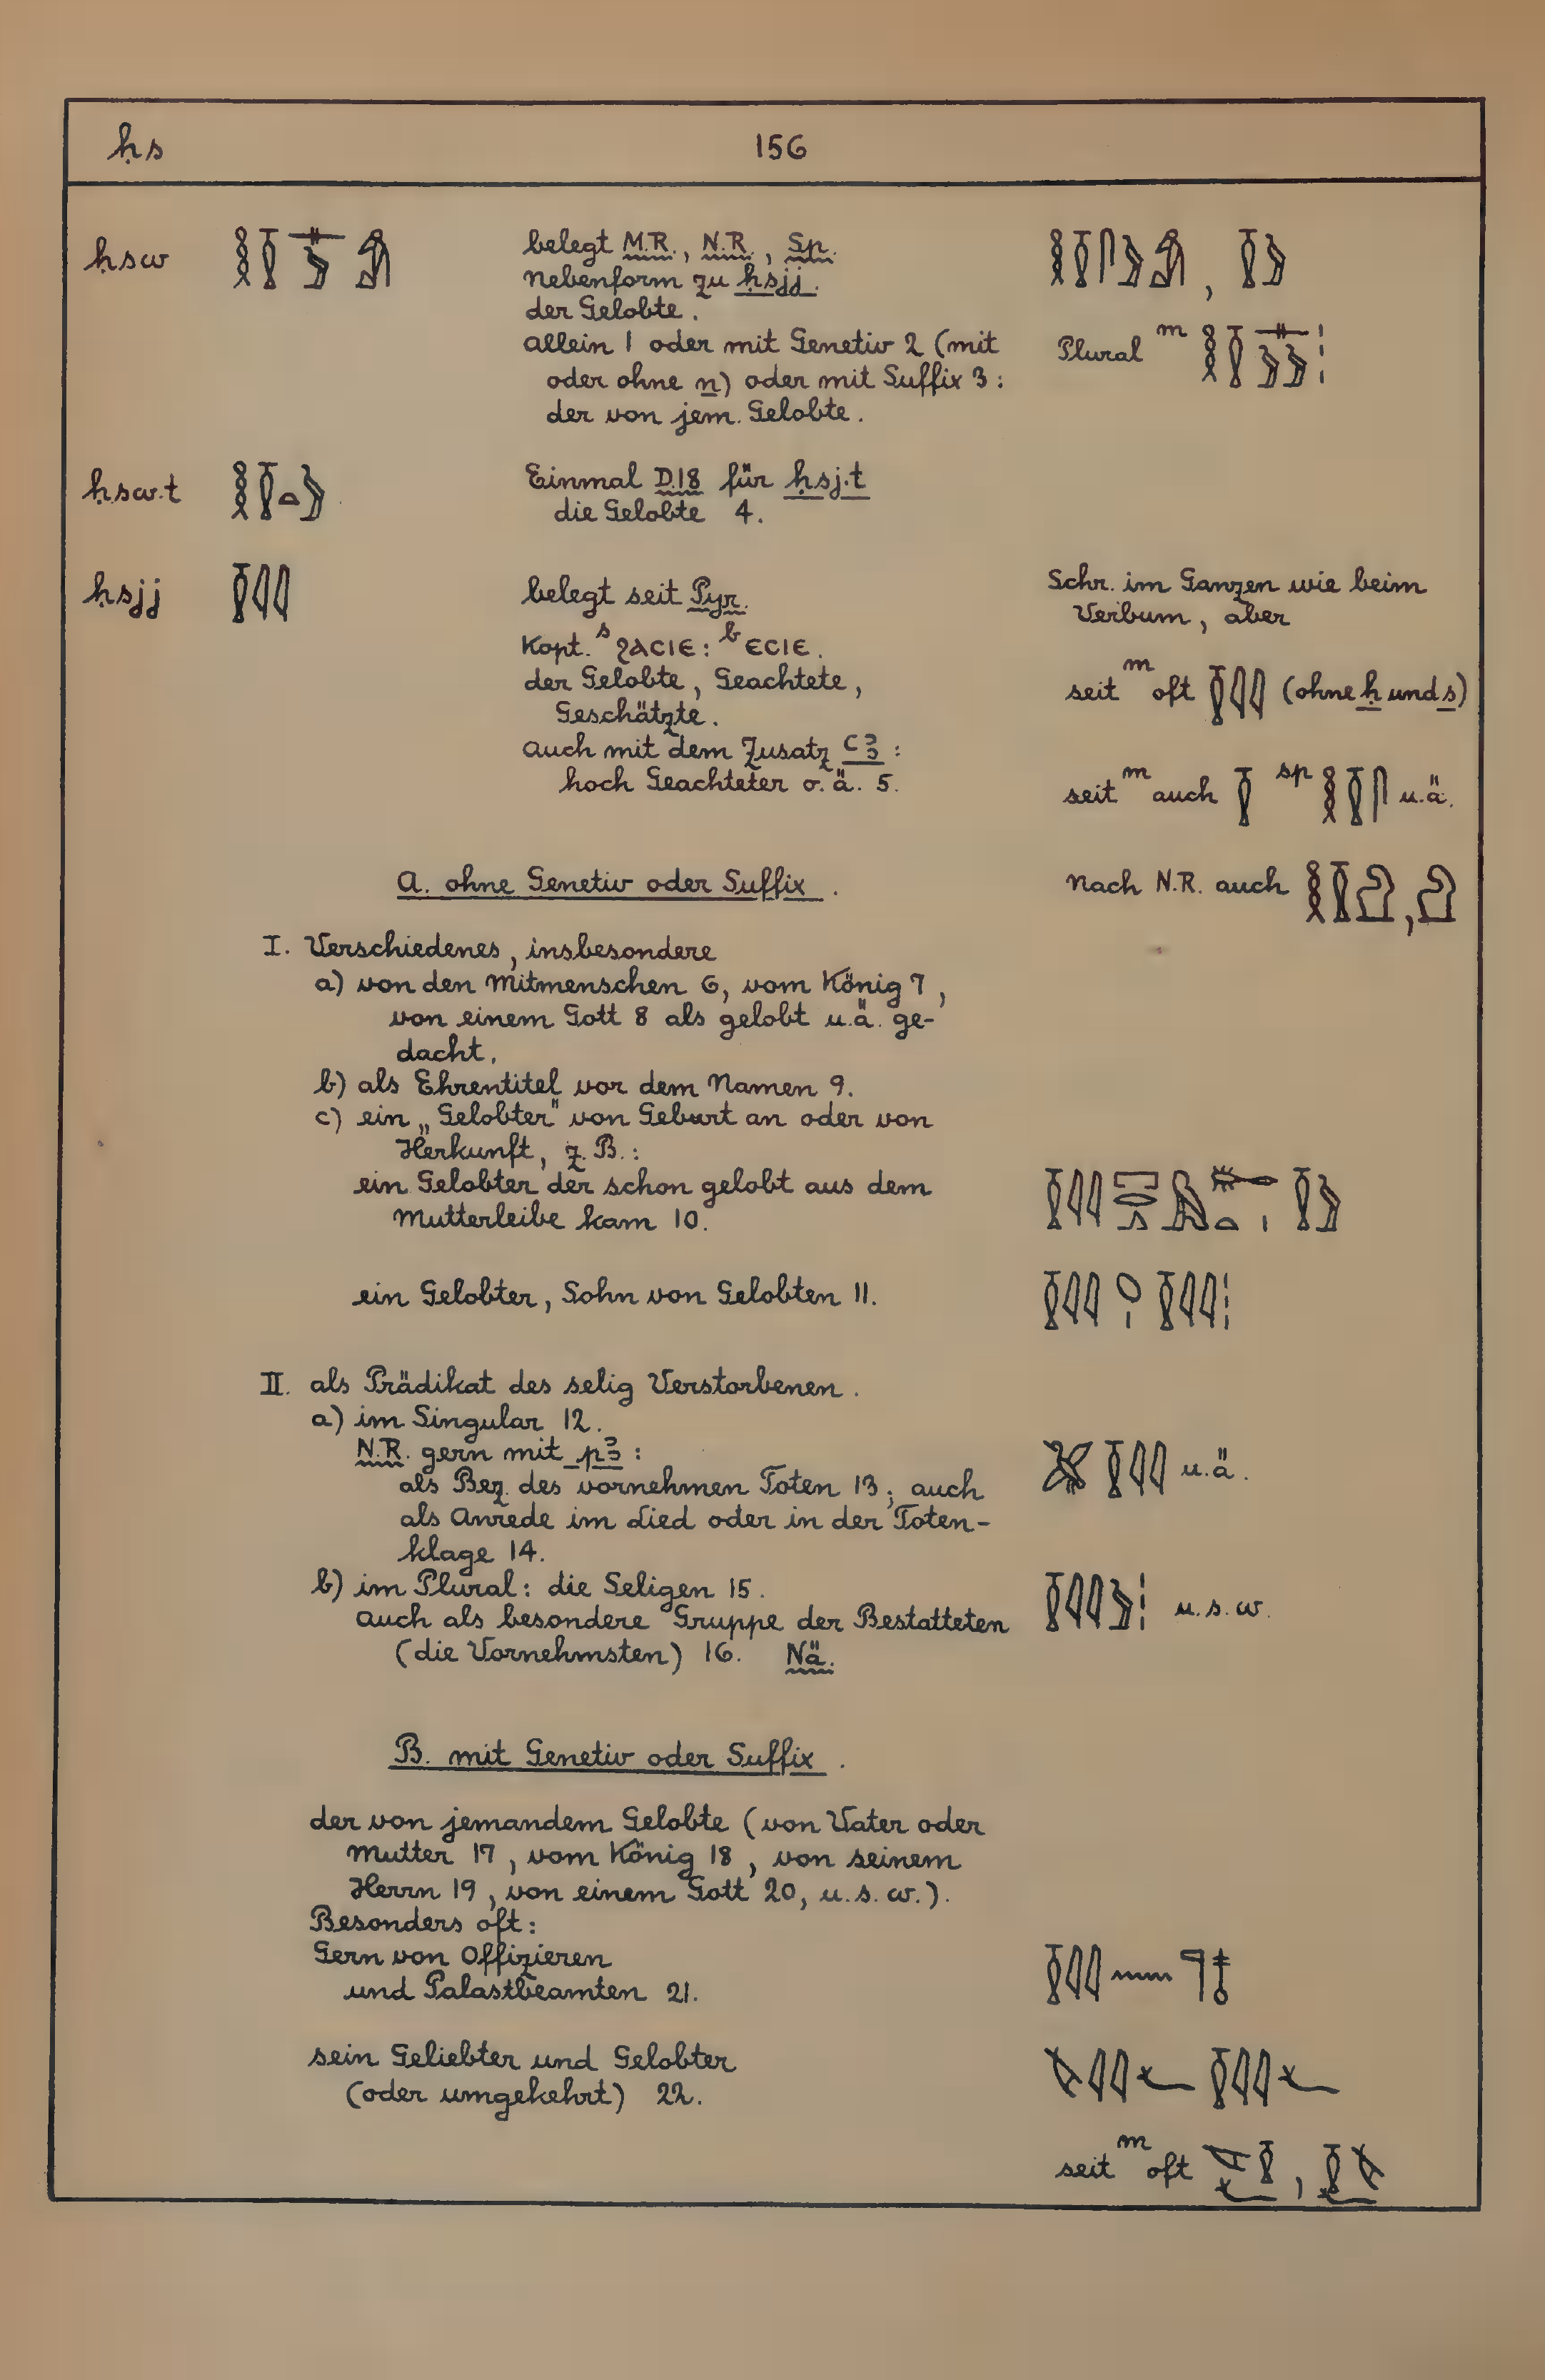 ḥs 156
ḥsw 𓎛𓎿𓊃𓅱𓀢 belegt M.R., N.R., Sp.
Nebenform zu ḥsjj.
der Gelobte.
allein 1 oder mit Genetiv 2 (mit
oder ohne n) oder mit Suffix 3:
der von jem. Gelobte.
Plural m
ḥsw.t Einmal D.18 für ḥsj.t
die Gelobte 4.
ḥsjj belegt seit Pyr.
Kopt. s ϩⲁⲥⲓⲉ: b ⲉⲥⲓⲉ.
der Gelobte, Geachtete,
Geschätzte.
auch mit dem Zusatz ꜥꜣ:
hoch Geachteter o.ä. 5.
Schr. im Ganzen wie beim
Verbum, aber
seit m oft 𓎿𓇋𓇋 (ohne ḥ und s)
seit m auch 𓎿 sp 𓎛𓎿𓋴 u.ä.
nach N.R. auch
A. ohne Genetiv oder Suffix.
I. Verschiedenes, insbesondere
a) von den Mitmenschen 6, vom König 7,
von einem Gott 8 als gelobt u.ä. ge-
dacht.
b) als Ehrentitel vor dem Namen 9.
c) ein „Gelobter" von Geburt an oder von
Herkunft, z.B.:
ein Gelobter der schon gelobt aus dem
Mutterleibe kam 10.
ein Gelobter, Sohn von Gelobten 11.
II. als Prädikat des selig Verstorbenen.
a) im Singular 12.
N.R. gern mit pꜣ:
als Bez. des vornehmen Toten 13; auch
als Anrede im Lied oder in der Toten-
klage 14.
u.ä.
b) im Plural: die Seligen 15.
auch als besondere Gruppe der Bestatteten
(die Vornehmsten) 16. Nä.
u.s.w.
B. mit Genetiv oder Suffix.
der von jemandem Gelobte (von Vater oder
Mutter 17, vom König 18, von seinem
Herrn 19, von einem Gott 20, u.s.w.).
Besonders oft:
Gern von Offizieren
und Palastbeamten 21.
sein Geliebter und Gelobter
(oder umgekehrt) 22.
seit m oft